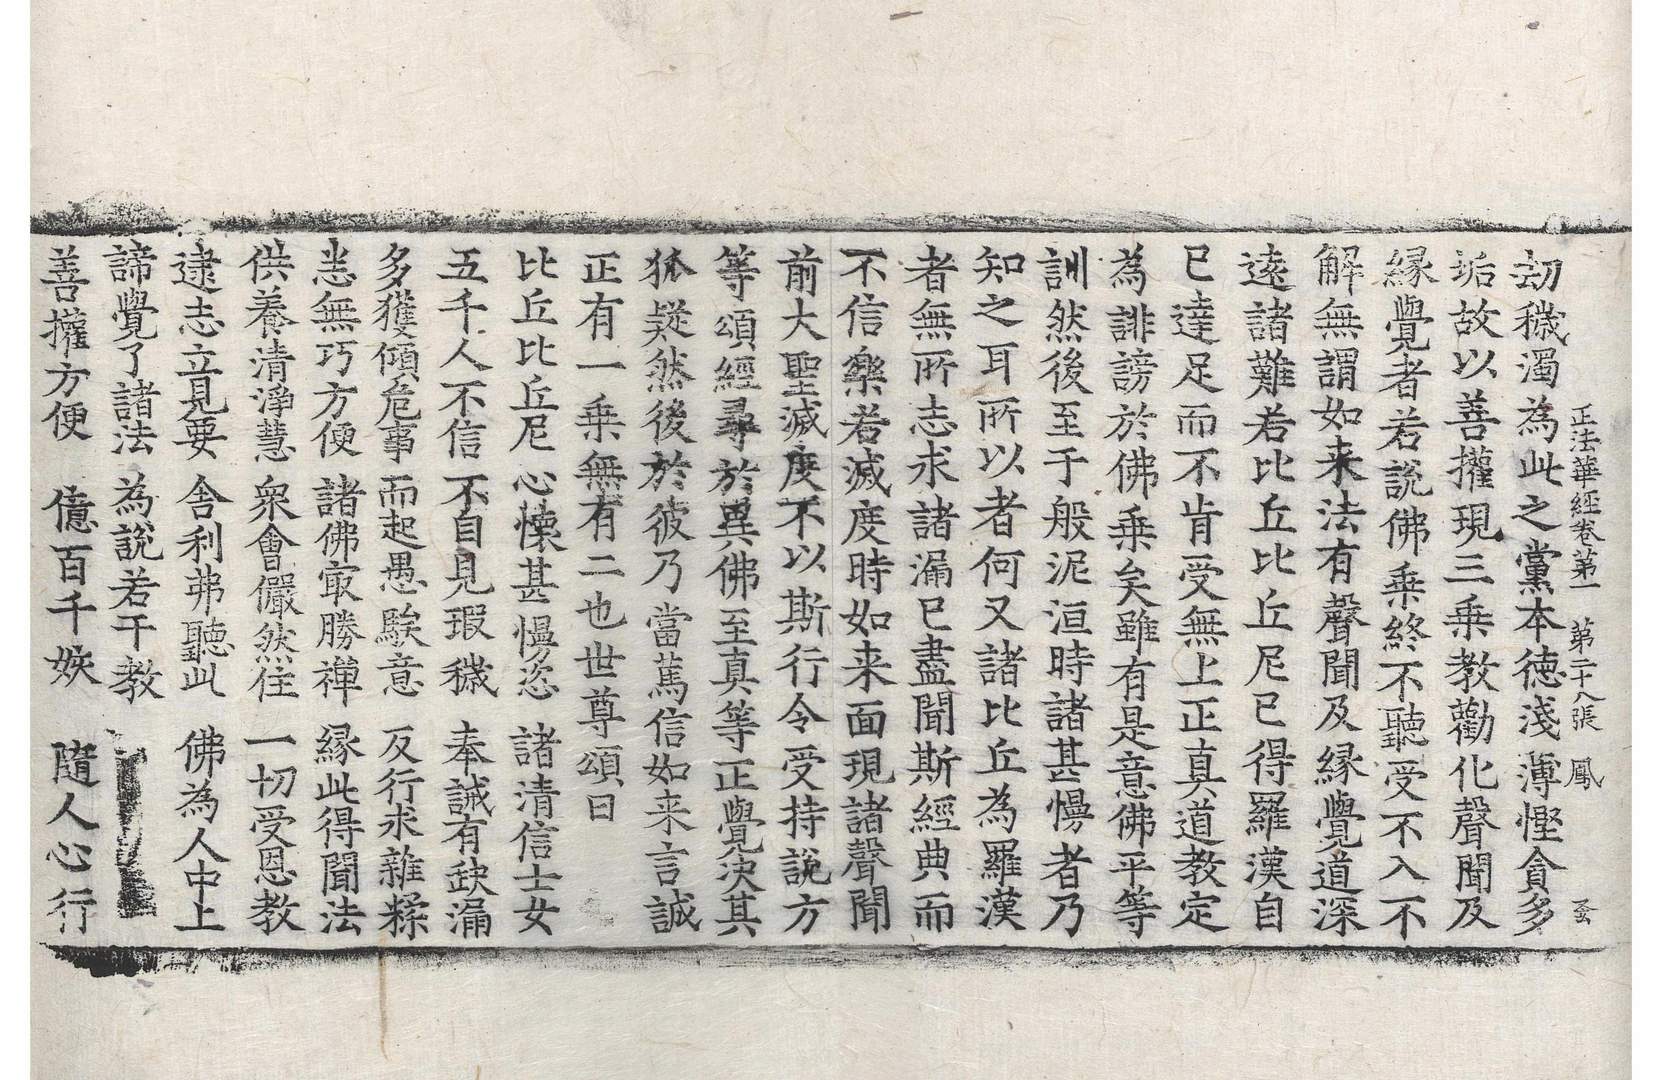 正法華經卷第一 第二十八張 鳳
劫穢濁為此之黨本德淺薄慳貪多
垢故以善權現三乗教勸化聲聞及
縁覺者若說佛乗終不聽受不入不
解無謂如来法有聲聞及縁覺道深
遠諸難若比丘比丘尼已得羅漢自
已達足而不肯受無上正真道教定
為誹謗於佛乗矣雖有是意佛平等
訓然後至于般泥洹時諸甚慢者乃
知之耳所以者何又諸比丘為羅漢
者無所志求諸漏已盡聞斯經典而
不信樂若滅度時如来面現諸聲聞
前大聖滅度不以斯行令受持說方
等頌經尋於異佛至真等正覺决其
狐疑然後於彼乃當篤信如来言誠
正有一乗無有二也世尊頌曰
比丘比丘尼 心懷甚慢恣 諸清信士女
五千人不信 不自見瑕穢 奉誡有缺漏
多獲傾危事 而起愚騃意 反行求雜糅
恙無巧方便 諸佛㝡勝禪 縁此得聞法
供養清淨慧 衆會儼然住 一切受恩教
逮志立見要 舎利弗聽此 佛為人中上
諦覺了諸法 為說若干教
善攉方便 億百千姟 隨人心行